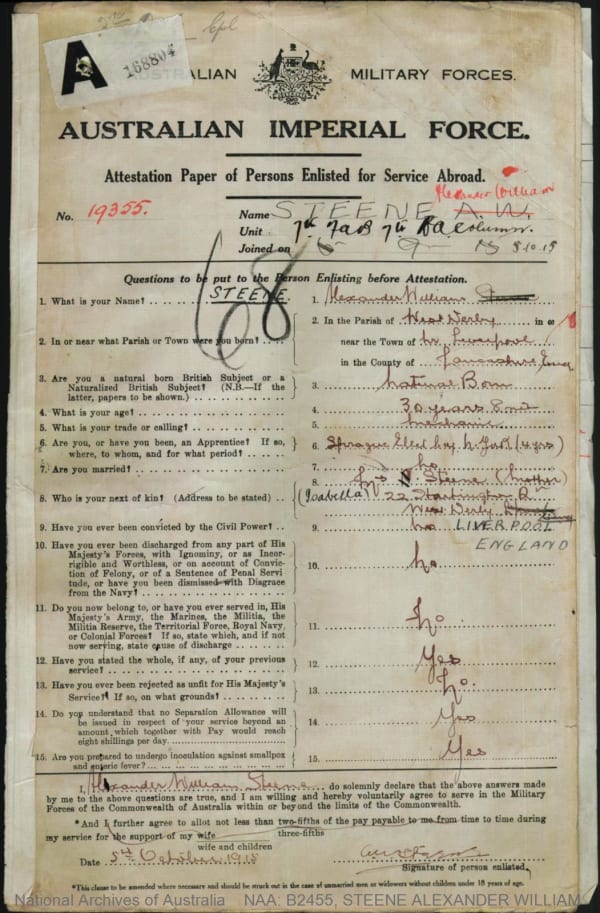 2nd Cpl
A 168804
AUSTRALIAN MILITARY FORCES.
AUSTRALIAN IMPERIAL FORCE.
Attestation Paper of Persons Enlisted for Service Abroad.
Alexander William
No. 19355. Name STEENE A.W.
Unit 7th FAB 7th BA Column.
Joined on 5.10.15
68
Questions to be put to the Person Enlisting before Attestation.
1. What is your Name? STEENE. 1. Alexander William Steene
2. In or near what Parish or Town were you born? 2. In the Parish of West Derby in or
near the Town of Nr Liverpool
in the County of Lancashire Eng
3. Are you a natural born British Subject or a
Naturalized British Subject? (N.B.—If the
latter, papers to be shown.) 3. Natural Born
4. What is your age? 4. 30 years
5. What is your trade or calling? 5. Mechanic
6. Are you, or have you been, an Apprentice? If so,
where, to whom, and for what period? 6. Sprague Elec (4 yrs)
7. Are you married? 7. No
8. Who is your next of kin? (Address to be stated) 8. Steene (Mother)
(Isabella) 22
West Derby
LIVERPOOL
ENGLAND
9. Have you ever been convicted by the Civil Power? 9. No
10. Have you ever been discharged from any part of His
Majesty's Forces, with Ignominy, or as Incor-
rigible and Worthless, or on account of Convic-
tion of Felony, or of a Sentence of Penal Servi
tude, or have you been dismissed with Disgrace
from the Navy? 10. No
11. Do you now belong to, or have you ever served in, His
Majesty's Army, the Marines, the Militia, the
Militia Reserve, the Territorial Force, Royal Navy,
or Colonial Forces? If so, state which, and if not
now serving, state cause of discharge 11. No
12. Have you stated the whole, if any, of your previous
service? 12. Yes
13. Have you ever been rejected as unfit for His Majesty's
Service? If so, on what grounds? 13. No.
14. Do you understand that no Separation Allowance will
be issued in respect of your service beyond an
amount which together with Pay would reach
eight shillings per day. 14. Yes
15. Are you prepared to undergo inoculation against smallpox
and enteric fever? 15. Yes
I, Alexander William Steene do solemnly declare that the above answers made
by me to the above questions are true, and I am willing and hereby voluntarily agree to serve in the Military
Forces of the Commonwealth of Australia within or beyond the limits of the Commonwealth.
*And I further agree to allot not less than two-fifths of the pay payable to me from time to time during
three-fifths
my service for the support of my wife
wife and children
Date 5th October 1915
Signature of person enlisted.
*This clause to be amended where necessary and should be struck out in the case of unmarried men or widowers without children under 18 years of age.
National Archives of Australia NAA: B2455, STEENE ALEXANDER WILLIAM